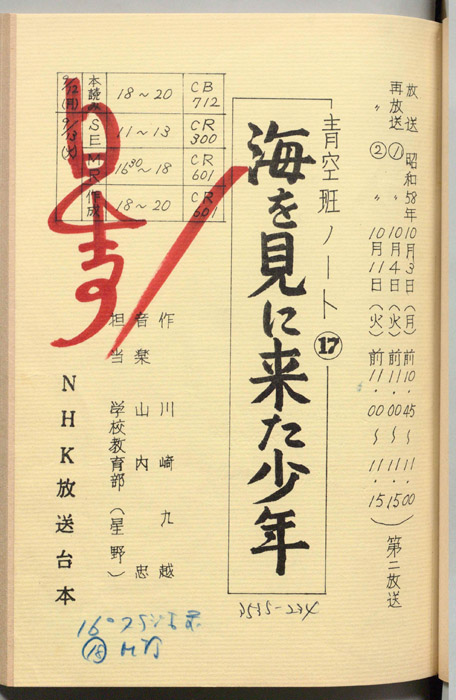 放送 昭和58年10月3日(月)前10.45～11.00
再放送① 〃 10月4日(火)前11.00～11.15
〃 ② 〃 10月11日(火)前11.00～11.15
第二放送
青空班ノート⑰
海を見に来た少年
9/12(月) 本読み 18～20 CB712
9/13(火) SE 11～13 CR300
MR 16³⁰～18 CR601
作成 18～20 CR601
作 川崎九越
音楽 山内忠
担当 学校教育部(星野)
NHK放送台本